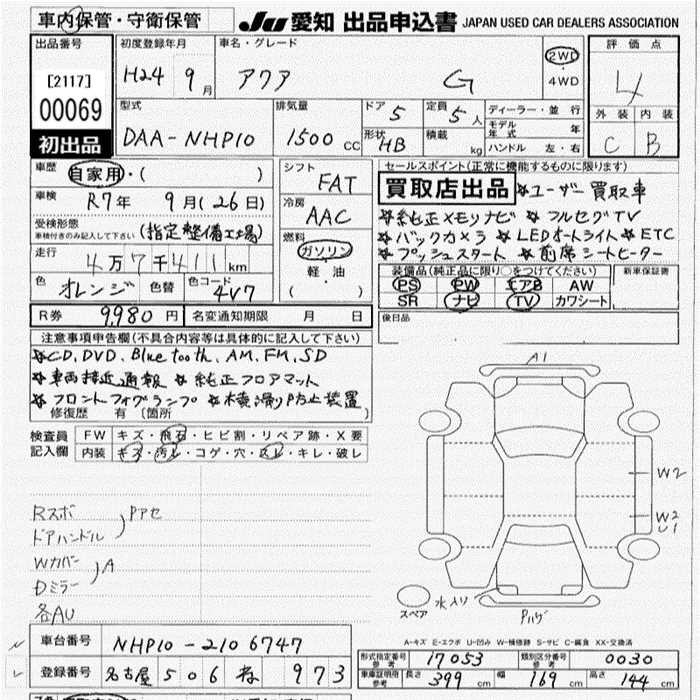 車内保管・守衛保管 JU 愛知 出品申込書 JAPAN USED CAR DEALERS ASSOCIATION
出品番号 初度登録年月 車名・グレード 2WD・4WD 評価点
[2117] H24 9月 アクア G 4
00069 型式 排気量 ドア 5 定員 5人 ディーラー・並行 外装 内装
初出品 DAA-NHP10 1500cc 形状 HB 積載 kg モデル年式 年 ハンドル 左・右 C B
車歴 自家用・( ) シフト FAT セールスポイント(正常に機能するものに限ります)
車検 R7年 9月(26日) 冷房 AAC 買取店出品 ☆ユーザー買取車
受検形態 車検付きのみ記入して下さい (指定整備工場) ☆純正メモリナビ ☆フルセグTV
走行 4万7千411km 燃料 ガソリン・軽油 ( ) ☆バックカメラ ☆LEDオートライト ☆ETC
☆プッシュスタート ☆前席シートヒーター
色 オレンジ 色替 色コード 4V7 装備品(純正品に限り○をつけてください) 新車保証書
PS PW エアB AW
SR ナビ TV カワシート
R券 9,980円 名変通知期限 月 日 後日品
注意事項申告欄(不具合内容等は具体的に記入して下さい)
☆CD, DVD, Bluetooth, AM, FM, SD
☆車両接近通報 ☆純正フロアマット
☆フロントフォグランプ ☆横滑り防止装置
修復歴 有 (箇所
検査員記入欄 FW キズ・飛石・ヒビ割・リペア跡・X要
内装 キズ・汚レ・コゲ・穴・スレ・キレ・破レ
A1
W2
W2
U1
Rスポ
ドアハンドル Pアセ
Wカバー
Dミラー A
各AU
スペア 水入り Pハゲ
A-キズ E-エクボ U-凹み W-補修跡 S-サビ C-腐食 XX-交換済
車台番号 NHP10-2106747
形式指定番号 参考 17053 類別区分番号 参考 0030
登録番号 名古屋 506 973
車庫証明用 参考 長さ 399cm 幅 169cm 高さ 144cm